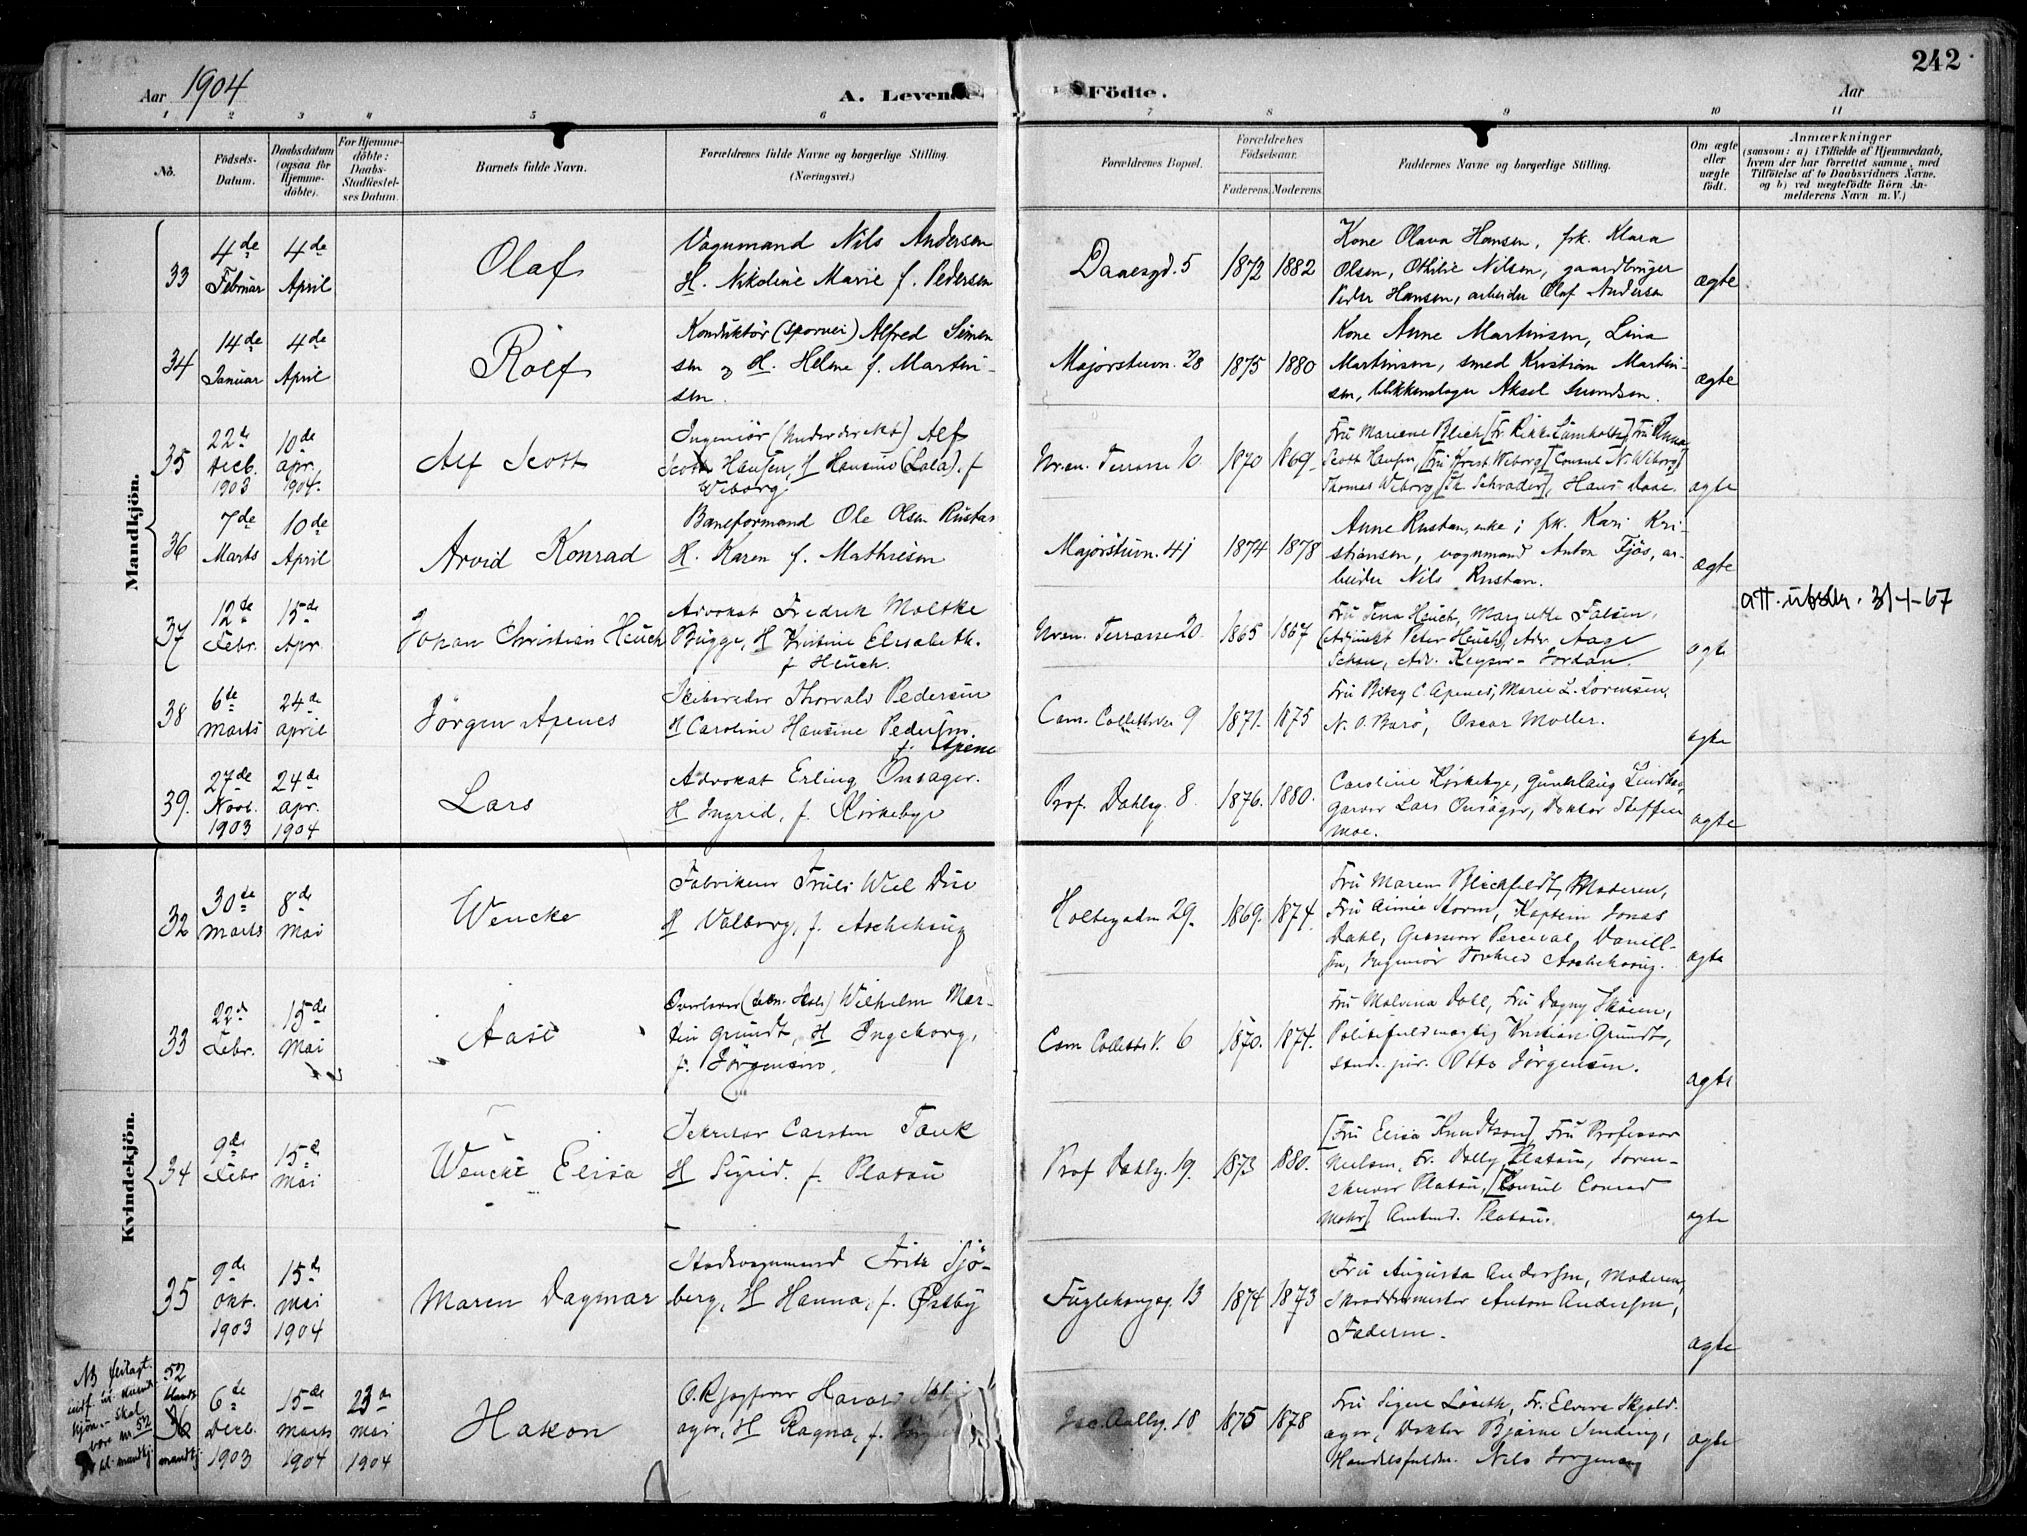 242
Aar 1904
A. Levende Födte.
Aar
1 2 3 4 5 6 7 8 9 10 11
No.
Födsels-
Datum.
Daabsdatum
(ogsaa for
Hjemme-
döbte).
For Hjemme-
döbte:
Daabs-
Stadfæstel-
ses Datum.
Barnets fulde Navn.
Forældrenes fulde Navne og borgerlige Stilling.
(Næringsvei.)
Forældrenes Bopæl.
Forældrenes
Födselsaar.
Faderens. Moderens.
Faddernes Navne og borgerlige Stilling.
Om ægte
eller
uægte
födt.
Anmærkninger
(saasom: a) i Tilfælde af Hjemmedaab,
hvem der har forrettet samme, med
Tilföielse af to Daabsvidners Navne.
og b) ved uægtefödte Börn An-
melderens Navn m. V.)
Mandkjön.
33
4de
Februar
4de
April
Olaf
Vognmand Nils Andersen
H. Nikoline Marie f. Pedersen
Daaesgd. 5
1872
1882
Kone Olava Hansen, frk. Klara
Olsen, Othilie Nilsen, gaardbruger
Peder Hansen, arbeider Olaf Andersen
ægte
34
14de
Januar
4de
April
Rolf
Konduktør (sporvei) Alfred Simen
sen og H. Helene f. Martin-
sen.
Majorstuvn. 28
1875
1880
Kone Anne Martinsen, Lina
Martinsen, smed Kristian Martin-
sen, blikkenslager Aksel
ægte
35
22de
Decb.
1903
10de
apr.
1904.
Alf Scott
Ingeniør Alf
Scott Hansen, H (Lala). f
Wiborg
Terrasse 10
1870
1869.
Thomas Wiborg Schrader], Hans Daae.
ægte
36
7de
Marts
10de
April
Arvid Konrad
Baneformand Ole Olsen Rustan
H. Karen f. Mathiesen
Majorstuvn. 41
1874
1878
Anne Rustan, enke; frk. Kari Kri-
stiansen, vognmand Anton Fjøs, ar-
beider Nils Rustan.
ægte
37
12de
Febr.
15de
Apr.
Johan Christian Heuch
Advokat Fredrik Moltke
Bugge, H Kristine Elisabeth.
f Heuch.
Terrasse 20.
1865
1867
Fru Tena Heuch, Margrethe Falsen,
(Adjunkt Peter Heuch), Adv. Aage
Schou, Adv. Keyser- Jordan.
ægte
31-1-67
38
6te
Marts
24de
april
Jørgen Apenes
Skibsreder Thorvald Pedersen
H Caroline Hansine Pedersen.
f. Apene
Cam. Collettsvei 9
1871.
1875
Fru Betsy C Apenes, Marie L. Lorensen,
N. O. Barø, Oscar Møller.
ægte
39.
27de
Novb.
1903
24de
apr.
1904
Lars
Advokat Erling Onsager.
H Ingrid, f. Kirkebye
Prof. Dahlsg. 8.
1876.
1880.
Caroline Kirkebye, Gunlaug
garver Lars Onsager, Doktor Steffen
Moe.
ægte
Kvindekjön.
32
30de
Marts
8de
Mai
Wencke
Fabrikeier Truls Wiel
H Valborg, f. Aschehoug
Holtegaden 29.
1869.
1874.
Fru Maren Blichfeldt, Moderen,
Fru Aimée Storm, Kaptein Jonas
Dahl, Grosserer Percival Daniel-
sen, Ingeniør Aschehoug.
ægte
33
22de
Febr.
15de
Mai
Aase
Overlærer Wilhelm Mar-
tin Grundt, H Ingeborg,
f. Jørgensen.
Cam Colletts V. 6
1870.
1874.
Fru Malvina Dahl, Fru Dagny Skøien,
Politifuldmægtig Kristian Grundt,
stud. jur. Otto Jørgensen.
ægte
34
9de
Febr
15de
Mai
Wencke Elisa
Sekretær Carsten Tank
H Sigrid. f. Platou
Prof Dahlsg. 19.
1873
1880.
[Fru Elisa Knudtson], Fru Professor
Nielsen, Fr. Dolly Platou, Soren-
skriver Platou, [Consul Conrad
Mohr] Amtmd. Platou.
ægte
35
9de
Okt.
1903
15de
Mai
1904
Maren Dagmar
Stadsvognmand Fritz Sjø-
berg, H Hanna, f. Østby
Fuglehaugg. 13
1874
1873
Fru Augusta Andersen, Moderen,
Skræddermester Anton Andersen,
Faderen.
ægte
NB feilagt
indf. u. kvind
kjøn. - skal
være no. 52
bl. mandkj.
52
blandt
36
mandkj
6te
Decb.
1903
15de
Marts
1904
23de
Mai
1904
Hakon
ager, H Ragna, f.
18
1875
1878
Fru Signe Løseth, Fr. Elvira Skjold-
ager, Doktor Bjarne Sinding,
Handelsfuldm. Nils Jørgensen
ægte